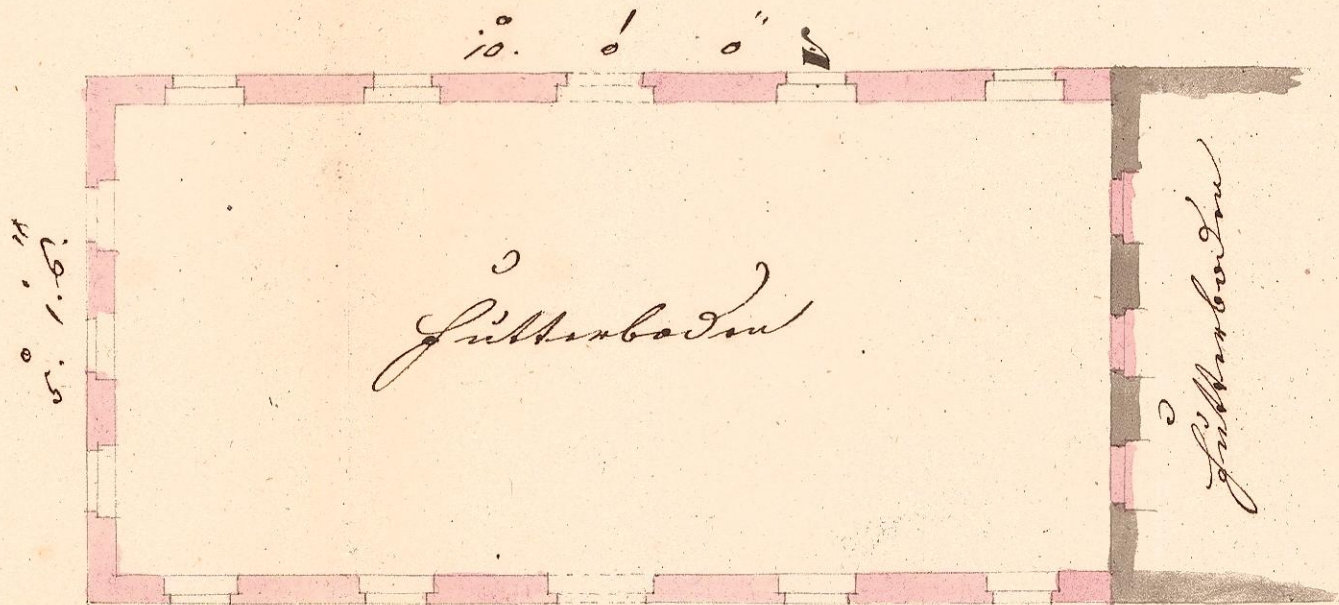 10.° 0' 0"
5.° 1.' 6."
Futterboden
Futterboden